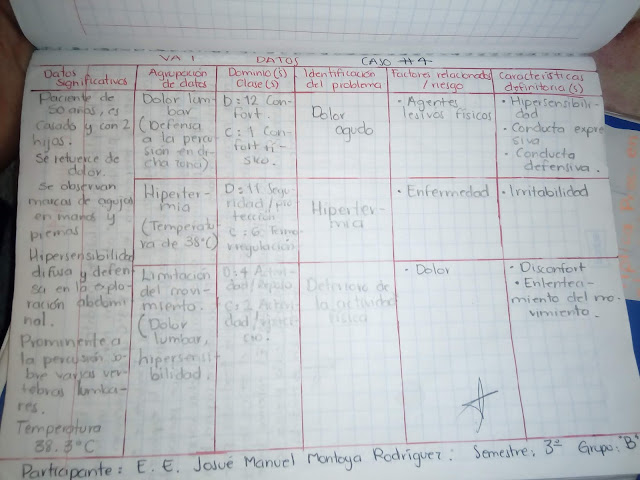 VA 1 DATOS CASO #4
Datos
Significativos
Agrupación
de datos
Dominio(s)
Clase(s)
Identificación
del problema
Factores relacionados
/ riesgo
Características
definitoria(s)
Paciente de
50 años, es
casado y con 2
hijos.
Se retuerce de
dolor.
Se observan
marcas de agujas
en manos y
piernas
Hipersensibilidad
difusa y defen
sa en la explo
ración abdomi
nal.
Prominente a
la percusión so-
bre varias ver-
tebras lumba-
res.
Temperatura
38.3°C
Dolor lum-
bar
(Defensa
a la percu
sión en di
cha zona)
D: 12 Con-
fort.
C: 1 Con-
fort fí-
sico.
Dolor
agudo
• Agentes
lesivos físicos
• Hipersensibili-
dad
• Conducta expre
siva
• Conducta
defensiva.
Hiperter-
mia
(Temperatu
ra de 38°C)
D: 11 Segu-
ridad/pro
tección
C: 6 Termo
rregulación
Hiperter-
mia
• Enfermedad
• Irritabilidad
Limitación
del movi-
miento.
(Dolor
lumbar,
hipersensi-
bilidad.
D: 4 Activi-
dad/
C: 2 Activi
dad/ejerci-
cio.
Deterioro de
la actividad
física
• Dolor
• Disconfort
• Enlenteci-
miento del mo-
vimiento.
Participante: E. E. Josué Manuel Montoya Rodríguez: Semestre: 3º Grupo: "B"